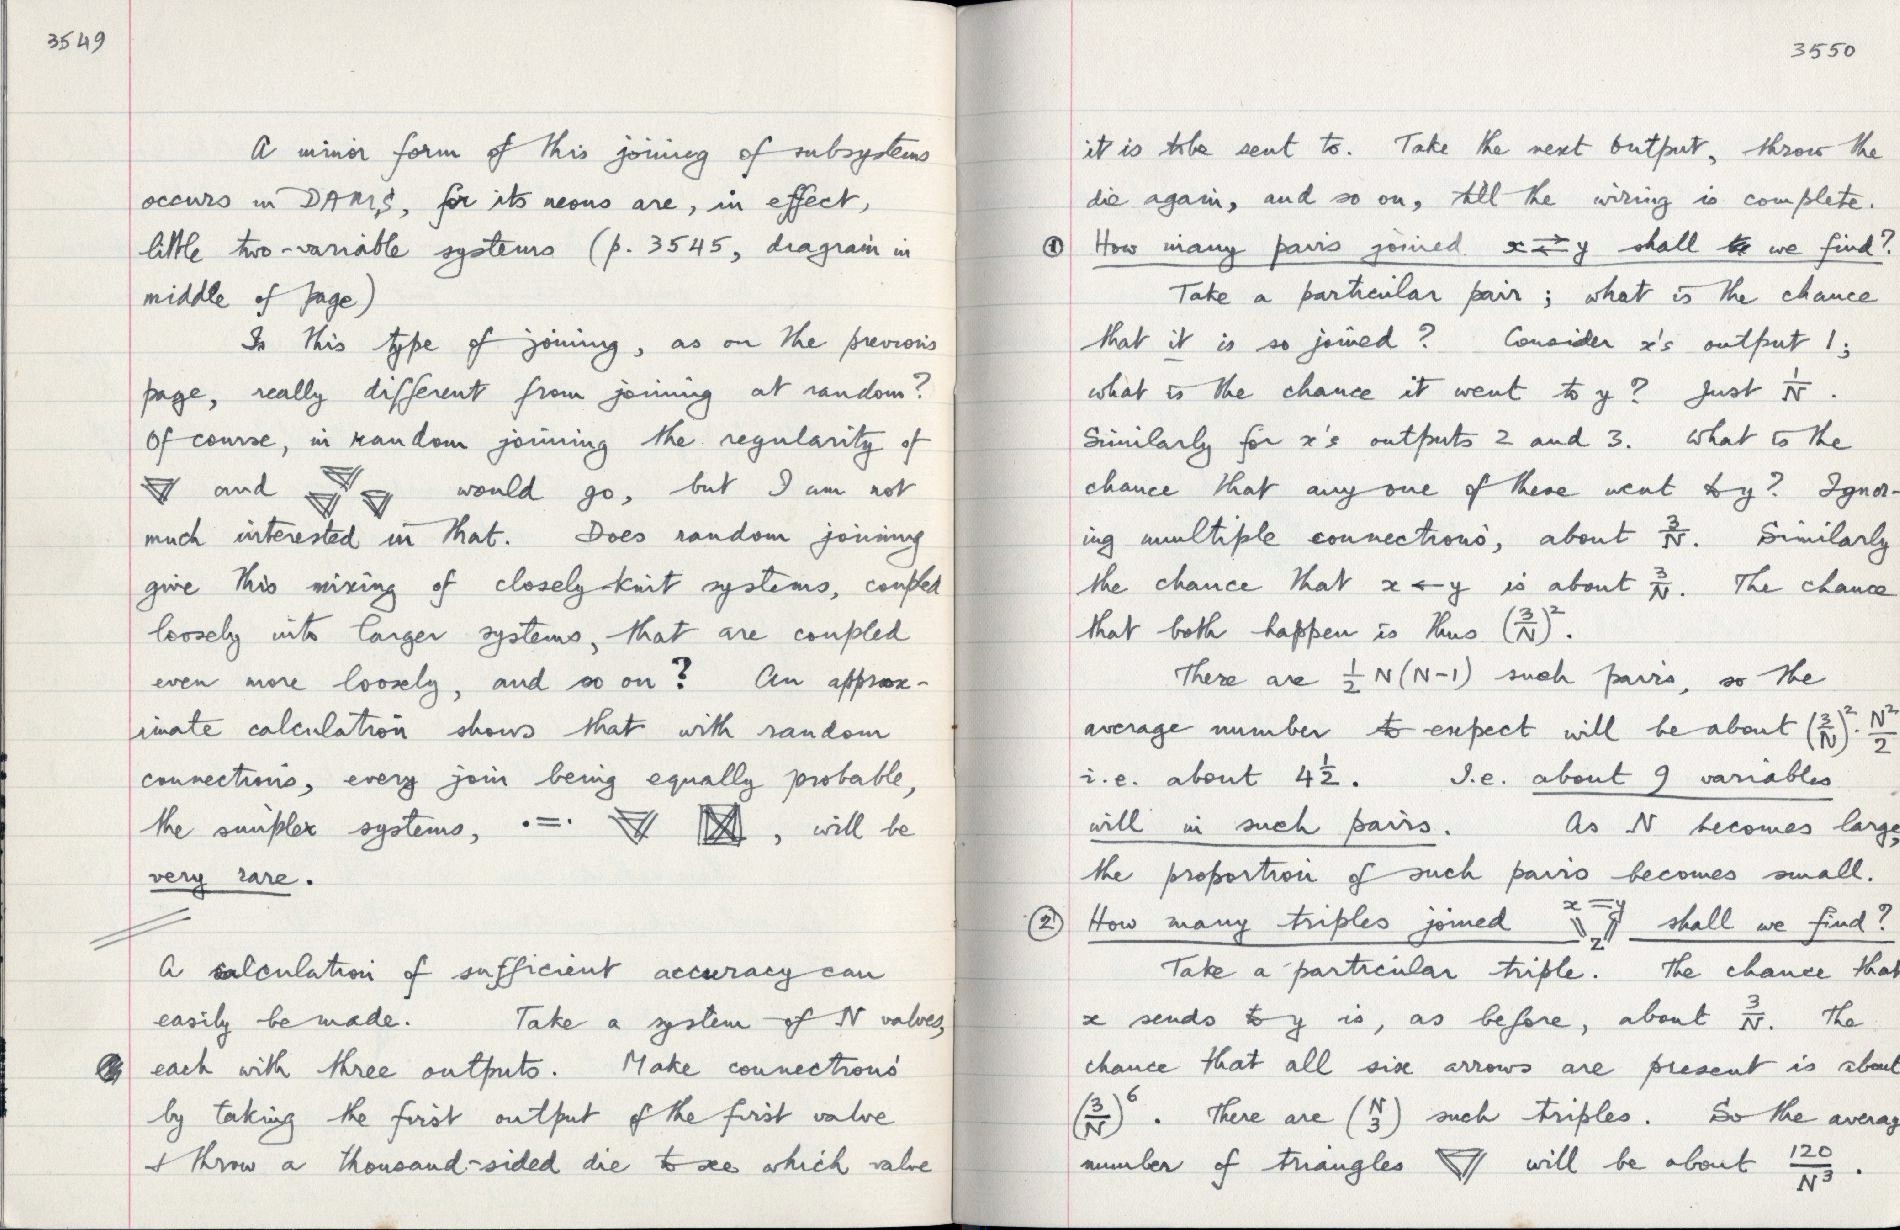 3549
A minor form of this joining of subsystems
occurs in DAMS, for its neons are, in effect,
little two-variable systems (p. 3545, diagram in
middle of page)
Is this type of joining, as on the previous
page, really different from joining at random?
Of course, in random joining the regularity of
and would go, but I am not
much interested in that. Does random joining
give this mixing of closely knit systems, coupled
loosely into larger systems, that are coupled
even more loosely, and so on? An approx-
imate calculation shows that with random
connections, every join being equally probable,
the simpler systems, , will be
very rare.
A calculation of sufficient accuracy can
easily be made. Take a system of N valves,
each with three outputs. Make connections
by taking the first output of the first valve
& throw a thousand-sided die to see which valve
3550
it is to be sent to. Take the next output, throw the
die again, and so on, till the wiring is complete.
① How many pairs joined x⇄y shall we find?
Take a particular pair; what is the chance
that it is so joined? Consider x's output 1;
what is the chance it went to y? Just 1/N.
Similarly for x's outputs 2 and 3. What is the
chance that any one of these went to y? Ignor-
ing multiple connections, about 3/N. Similarly
the chance that x ← y is about 3/N. The chance
that both happen is thus (3/N)².
There are ½ N(N-1) such pairs, so the
average number to expect will be about (3/N)². N²/2
i.e. about 4½. I.e. about 9 variables
will in such pairs. As N becomes large,
the proportion of such pairs becomes small.
② How many triples joined x y z shall we find?
Take a particular triple. The chance that
x sends to y is, as before, about 3/N. The
chance that all six arrows are present is about
(3/N)⁶. There are (N 3) such triples. So the averag
number of triangles will be about 120/N³.